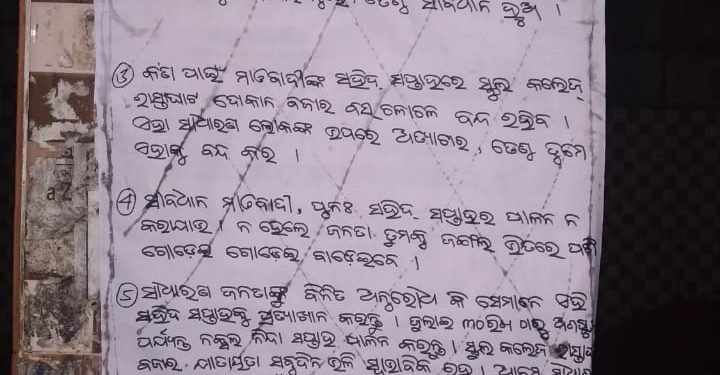 ତେଣୁ ସାବଧାନ ହୁଅ ।
③ କଁଣ ପାଇଁ ମାଓବାଦୀଙ୍କ ସହିଦ ସପ୍ତାହରେ ସ୍କୁଲ କଲେଜ୍
ରାସ୍ତାଘାଟ ଦୋକାନ ବଜାର ବସ୍ ଚଳାଚଳ ବନ୍ଦ ରହିବ ।
ଏହା ସାଧାରଣ ଲୋକଙ୍କ ଉପରେ ଅତ୍ୟାଚାର, ତେଣୁ ତୁମେ
ଏହାକୁ ବନ୍ଦ କର ।
④ ସାବଧାନ ମାଓବାଦୀ, ପୁନଃ ସହିଦ ସପ୍ତାହର ପାଳନ ନ
କରାଯାଉ । ନ ହେଲେ ଜନତା ତୁମକୁ ଜଙ୍ଗଲ ଭିତରେ ପଶି
ଗୋଡ଼େଇ ଗୋଡ଼େଇ ବାଡ଼େଇବେ ।
⑤ ସାଧାରଣ ଜନତାଙ୍କୁ ବିନିତ ଅନୁରୋଧ କି ସେମାନେ ଏହି
ସହିଦ ସପ୍ତାହକୁ ପ୍ରତ୍ୟାଖାନ କରନ୍ତୁ । ଜୁଲାଇ ୩୦ରିଖ ଠାରୁ ଅଗଷ୍ଟ
ପର୍ଯ୍ୟନ୍ତ ନକ୍ସଲ ନିନ୍ଦା ସପ୍ତାହ ପାଳନ କରନ୍ତୁ । ସ୍କୁଲ କଲେଜ ରାସ୍ତା
ବଜାର ଯାତାୟାତ ସବୁଦିନ ଭଳି ସ୍ୱାଭାବିକ ରହୁ ।